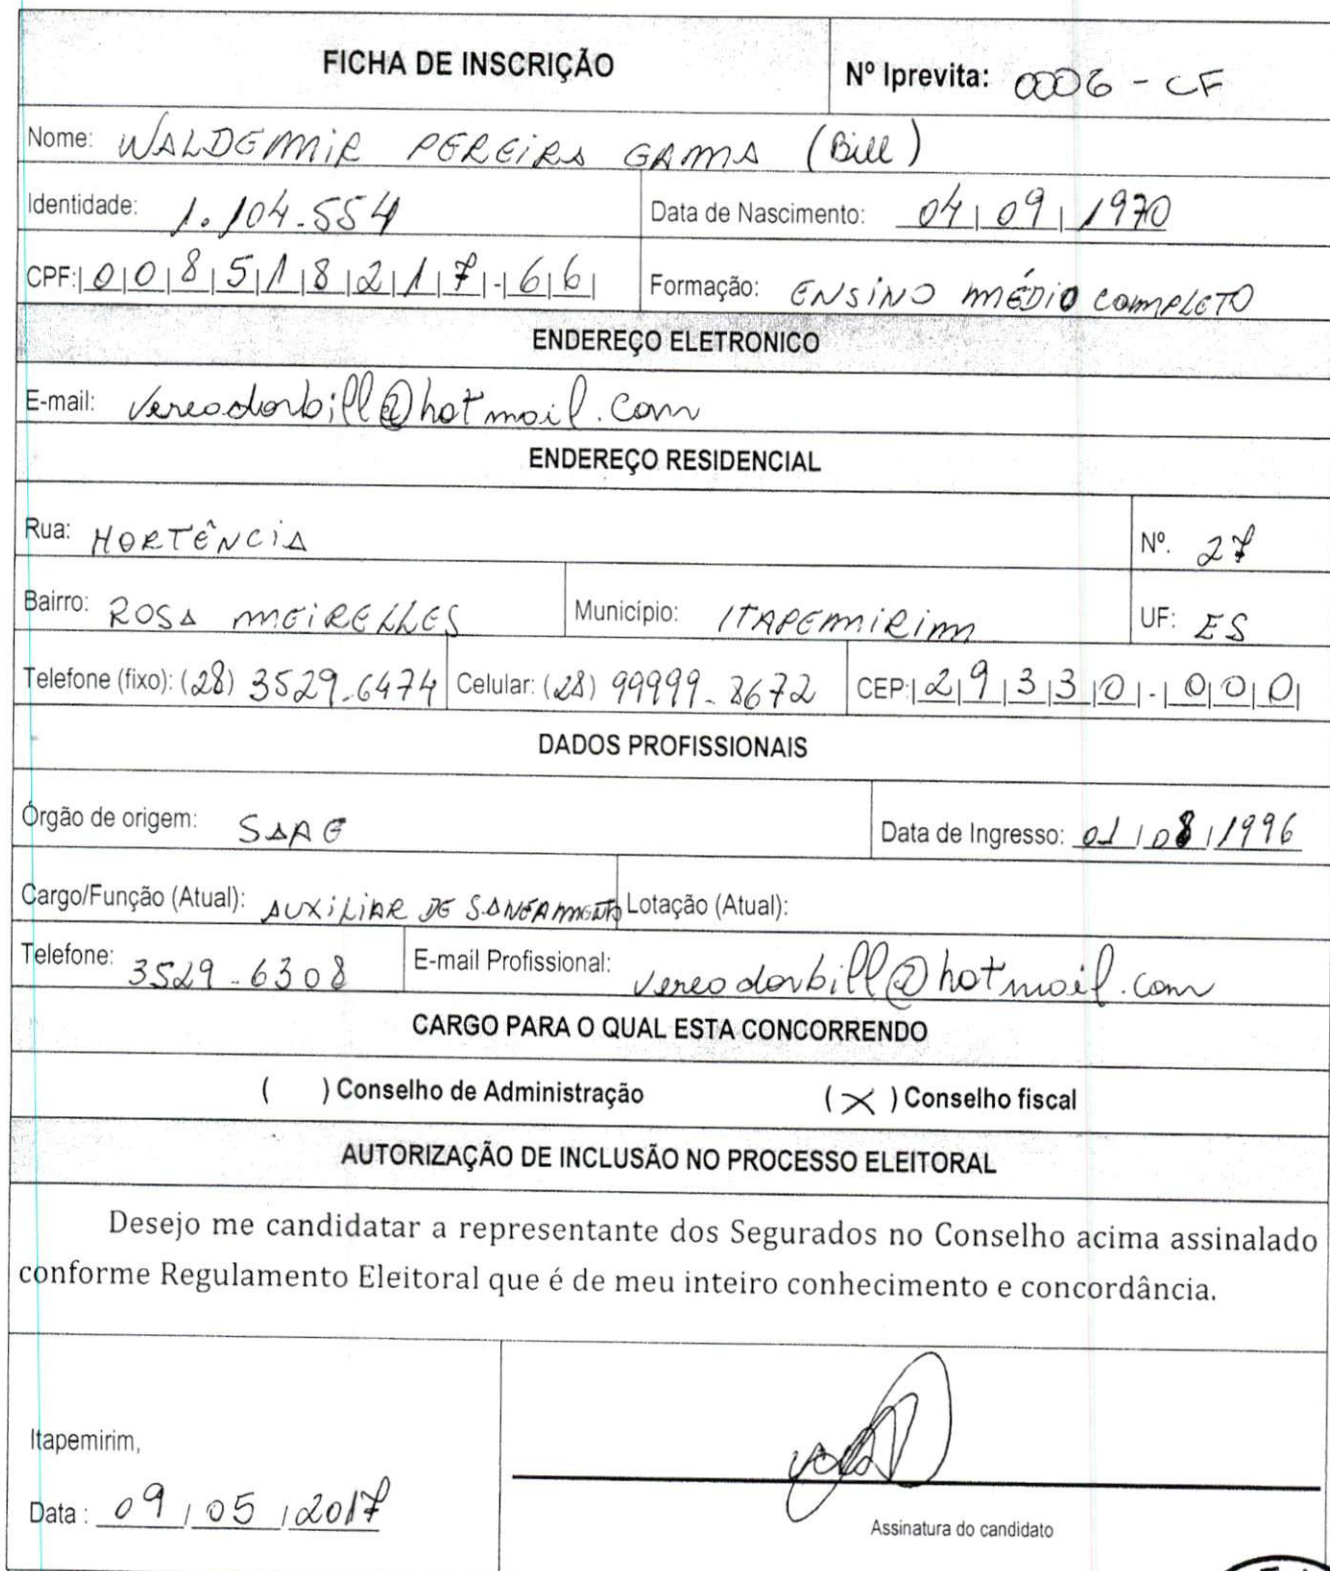 FICHA DE INSCRIÇÃO Nº Iprevita: 0006 - CF
Nome: WALDEMIR PEREIRA GAMA (Bill)
Identidade: 1.104.554 Data de Nascimento: 04|09|1970
CPF:|0|0|8|5|1|8|2|1|7|-|6|6| Formação: ENSINO MÉDIO COMPLETO
ENDEREÇO ELETRONICO
E-mail: vereadorbill@hotmail.com
ENDEREÇO RESIDENCIAL
Rua: HORTÊNCIA Nº. 27
Bairro: ROSA MEIRELLES Município: ITAPEMIRIM UF: ES
Telefone (fixo): (28) 3529-6474 Celular: (28) 99999-8672 CEP:|2|9|3|3|0|-|0|0|0|
DADOS PROFISSIONAIS
Órgão de origem: SAAE Data de Ingresso: 01|08|1996
Cargo/Função (Atual): AUXILIAR DE SANEAMENTO Lotação (Atual):
Telefone: 3529-6308 E-mail Profissional: vereadorbill@hotmail.com
CARGO PARA O QUAL ESTA CONCORRENDO
( ) Conselho de Administração (X) Conselho fiscal
AUTORIZAÇÃO DE INCLUSÃO NO PROCESSO ELEITORAL
Desejo me candidatar a representante dos Segurados no Conselho acima assinalado
conforme Regulamento Eleitoral que é de meu inteiro conhecimento e concordância.
Itapemirim,
Data: 09|05|2017
Assinatura do candidato